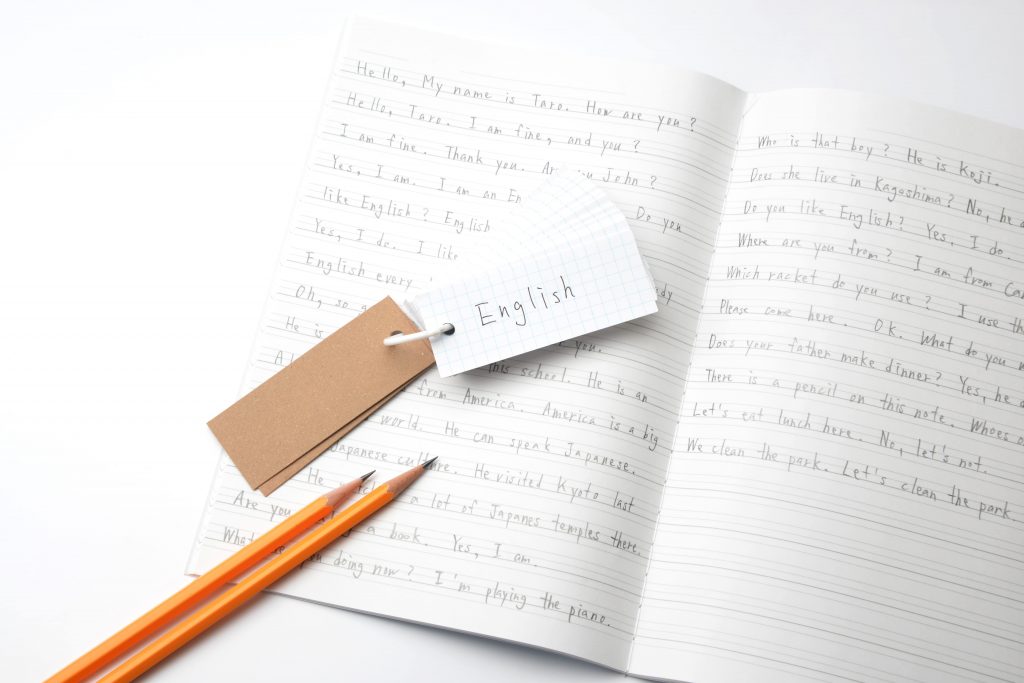 Hello, My name is Taro. How are you?
Hello, Taro. I am fine, and you?
I am fine. Thank you. Are you John?
Yes, I am. I am an Do you
like English? English
Yes, I do. I like
English every
Oh, so
He is you.
this school. He is an
from America. America is a big
world. He can speak Japanese.
Japanese culture. He visited Kyoto last
He a lot of Japanes temples there.
Are you a book. Yes, I am.
What you doing now? I'm playing the piano.
English
Who is that boy? He is Koji.
Does she live in Kagashima? No, he
Do you like English? Yes, I do.
Where are you from? I am from
Which racket do you use? I use
Please come here. Ok. What do you
Does your father make dinner? Yes, he
There is a pencil on this note. Whoes
Let's eat lunch here. No, let's not.
We clean the park. Let's clean the park.